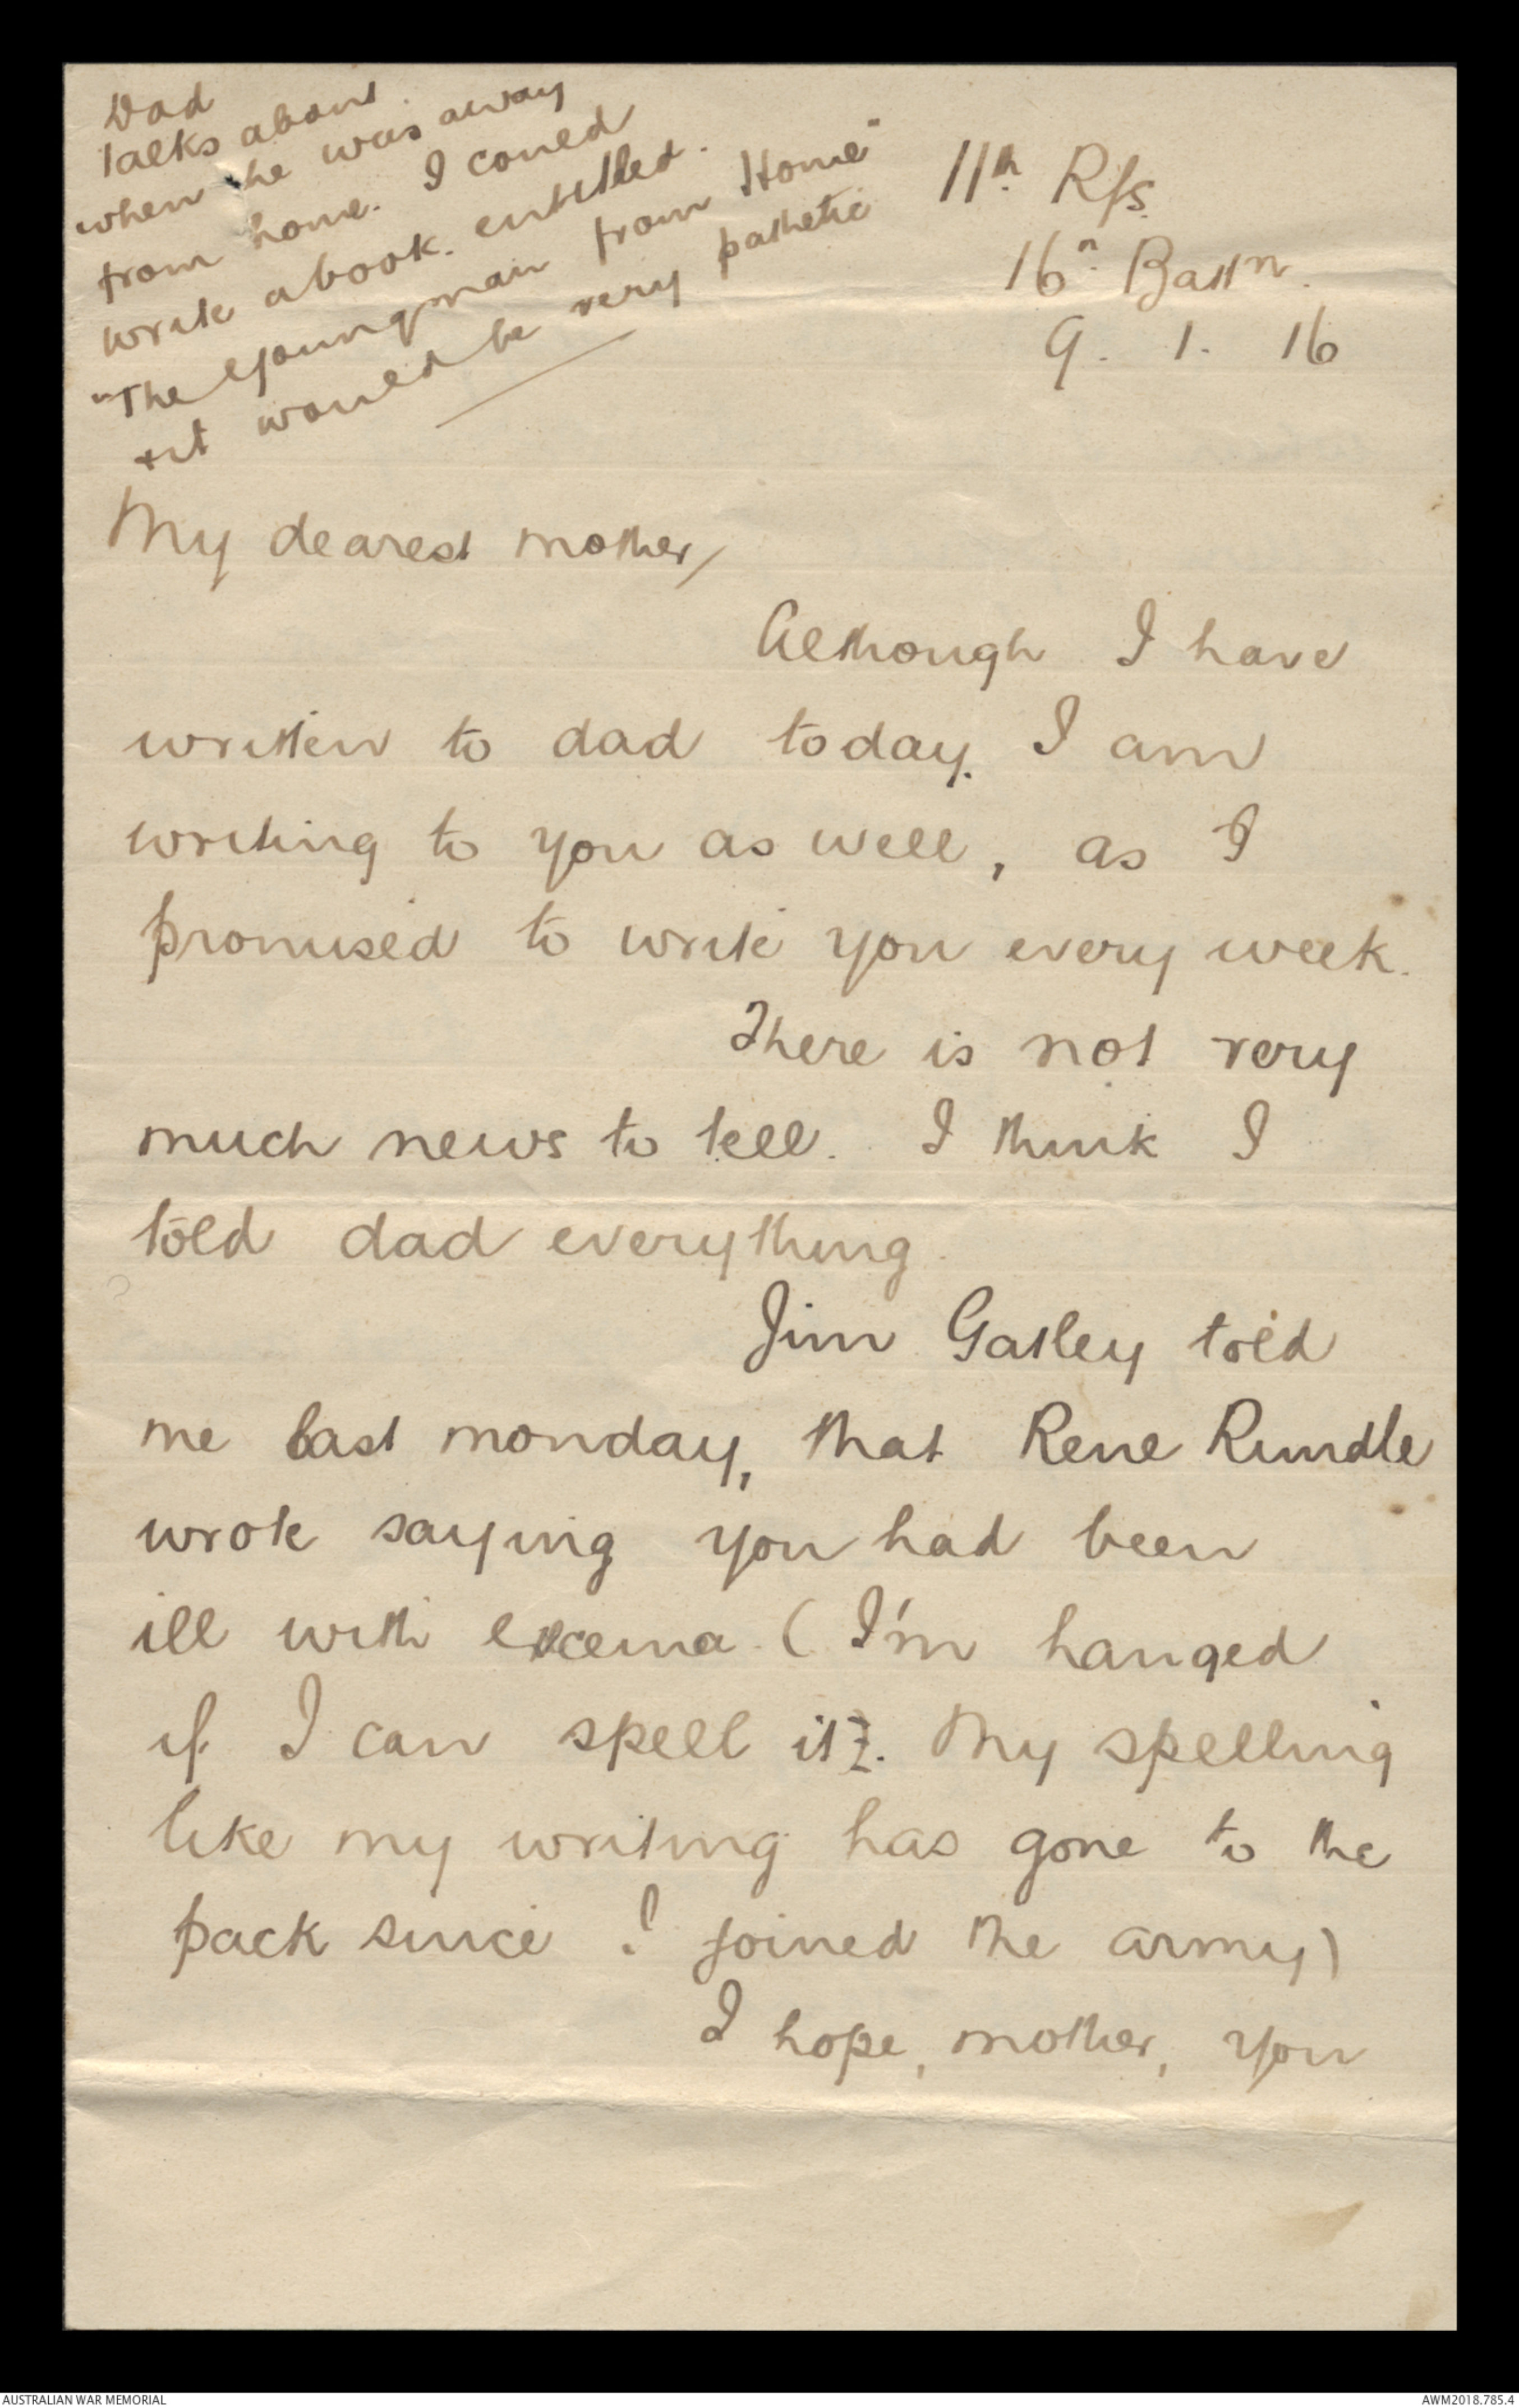 Dad
talks about
when he was away
from home. I could
write a book. entitled.
"The Young man from Home"
+ it would be very pathetic
11th Rfs.
16th Battn.
9. 1. 16
My dearest mother,
Although I have
written to dad today. I am
writing to you as well, as I
promised to write you every week.
There is not very
much news to tell. I think I
told dad everything.
Jim Gatley told
me last monday, that Rene Rundle
wrote saying you had been
ill with excema (I'm hanged
if I can spell it). My spelling
like my writing has gone to the
pack since I joined the army)
I hope, mother, you
AUSTRALIAN WAR MEMORIAL
AWM2018.785.4